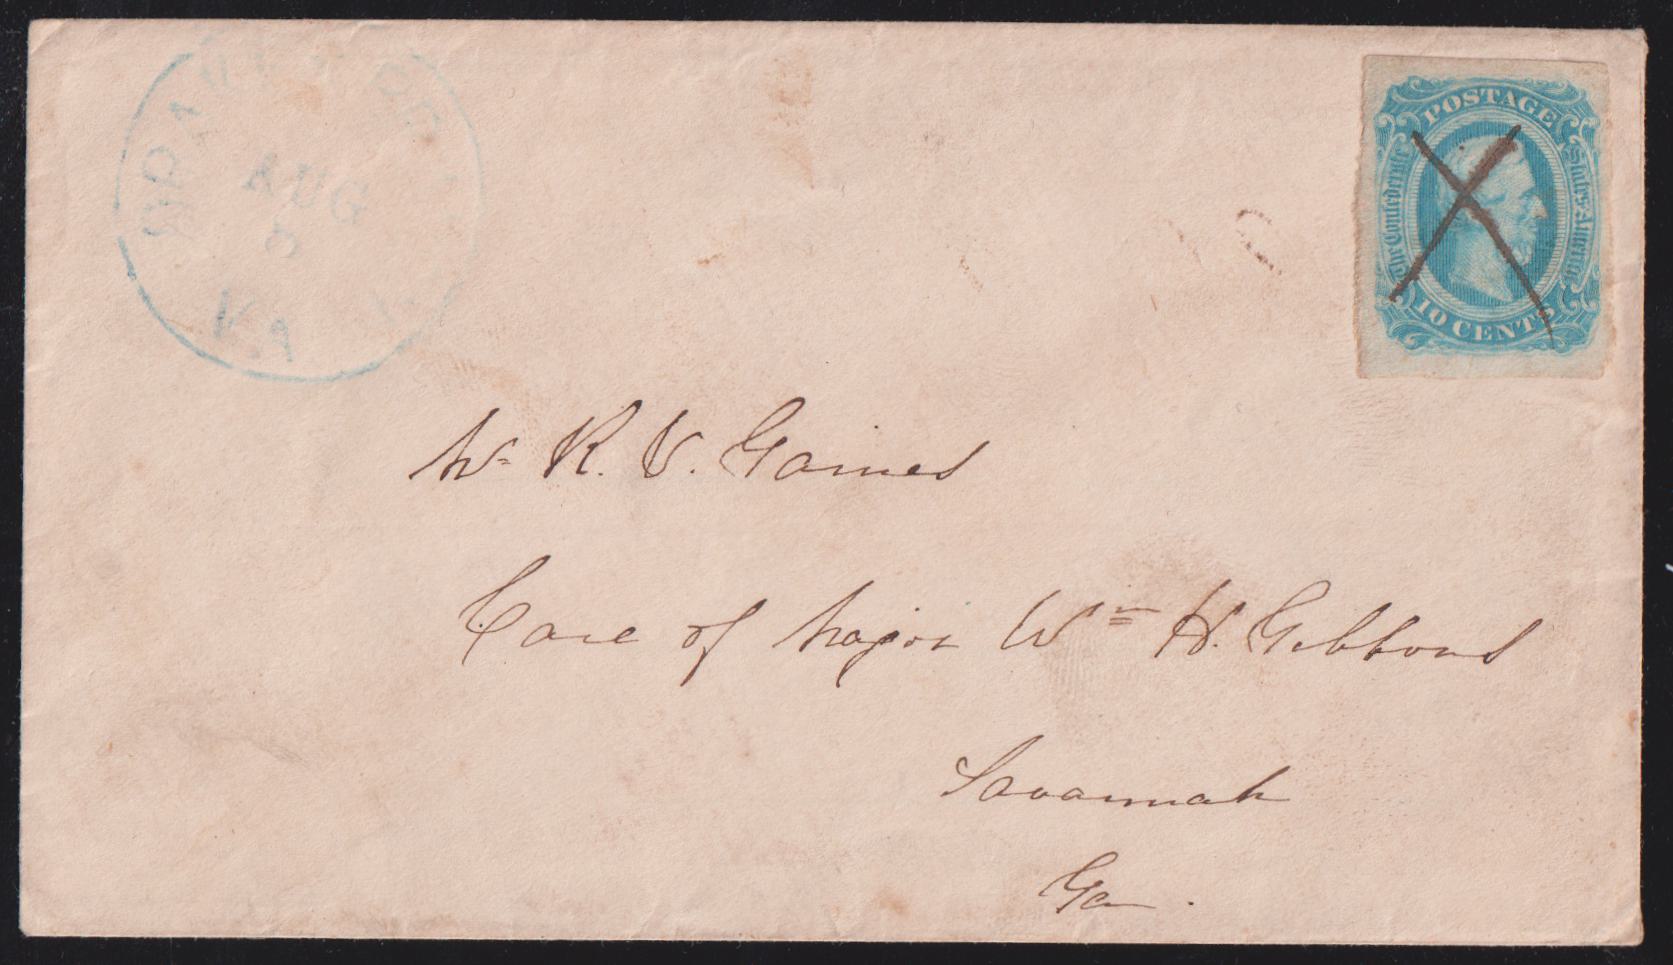 AUG
POSTAGE
The Confederate States of America
10 CENTS
Mr R. V. Gaines
Care of Major Wm H. Gibbons
Savannah
Ga.